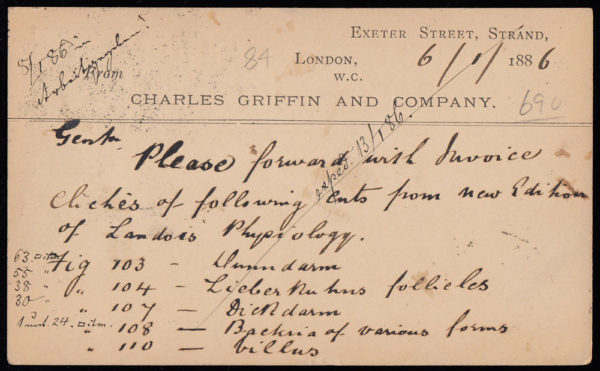 Exeter Street, Strand,
8/1 86
84
London,
W.C.
6/1/ 1886
From
Charles Griffin and Company.
690
exped. 13/1 86.
Gentn
Please forward with Invoice
Clichés of following Cuts from new Edition
of Landois Physiology.
63. □ctm. Fig 103 — Dunndarm
55
38 " " 104 — Lieberkuhns follicles
30 " " 107 — Dickdarm
1 und. 24. □ctm. " 108 — Backria of various forms
" 110 — Villus